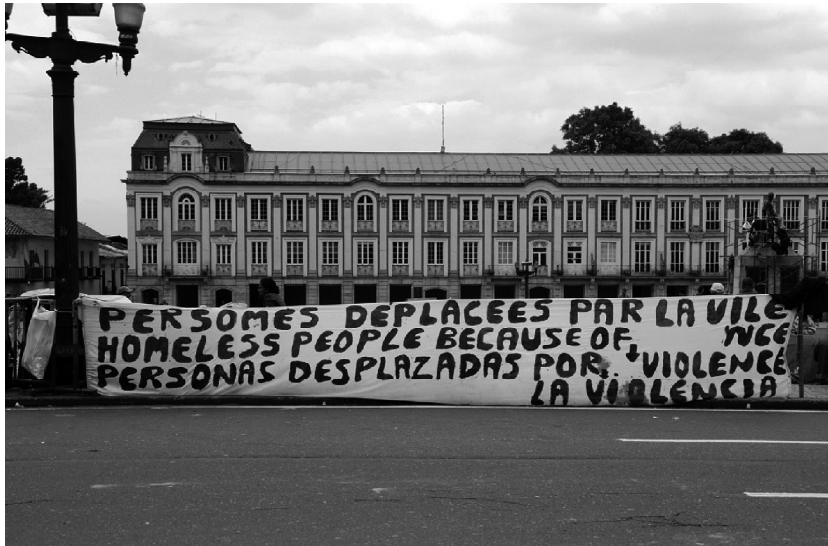 PERSOMES DEPLACEES PAR LA VILE
HOMELESS PEOPLE BECAUSE OF, NCE
PERSONAS DESPLAZADAS POR. VIOLENCE
LA VIOLENCIA